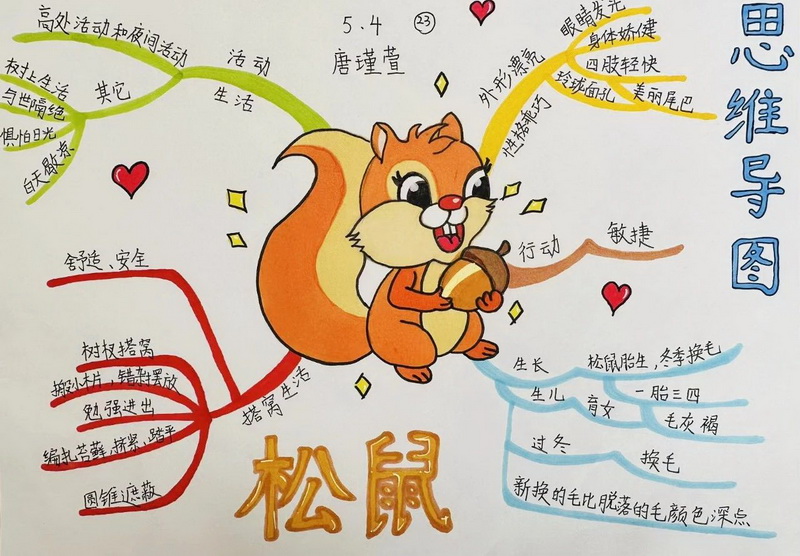 思维导图
5.4 ㉓
唐瑾萱
高处活动和夜间活动
活动
生活
其它
权扯生活
与世隔绝
惧怕日光
白天歇凉
外形漂亮
性格乖巧
眼睛发光
身体娇健
四肢轻快
玲珑面孔
美丽尾巴
行动
敏捷
舒适、安全
搭窝生活
树杈搭窝
搬小木片，错杂摆放
勉强进出
编扎苔藓，挤紧，踏平
圆锥遮蔽
生长
松鼠胎生，冬季换毛
生儿
育女
一胎三四
毛灰褐
过冬
换毛
新换的毛比脱落的毛颜色深点
松鼠